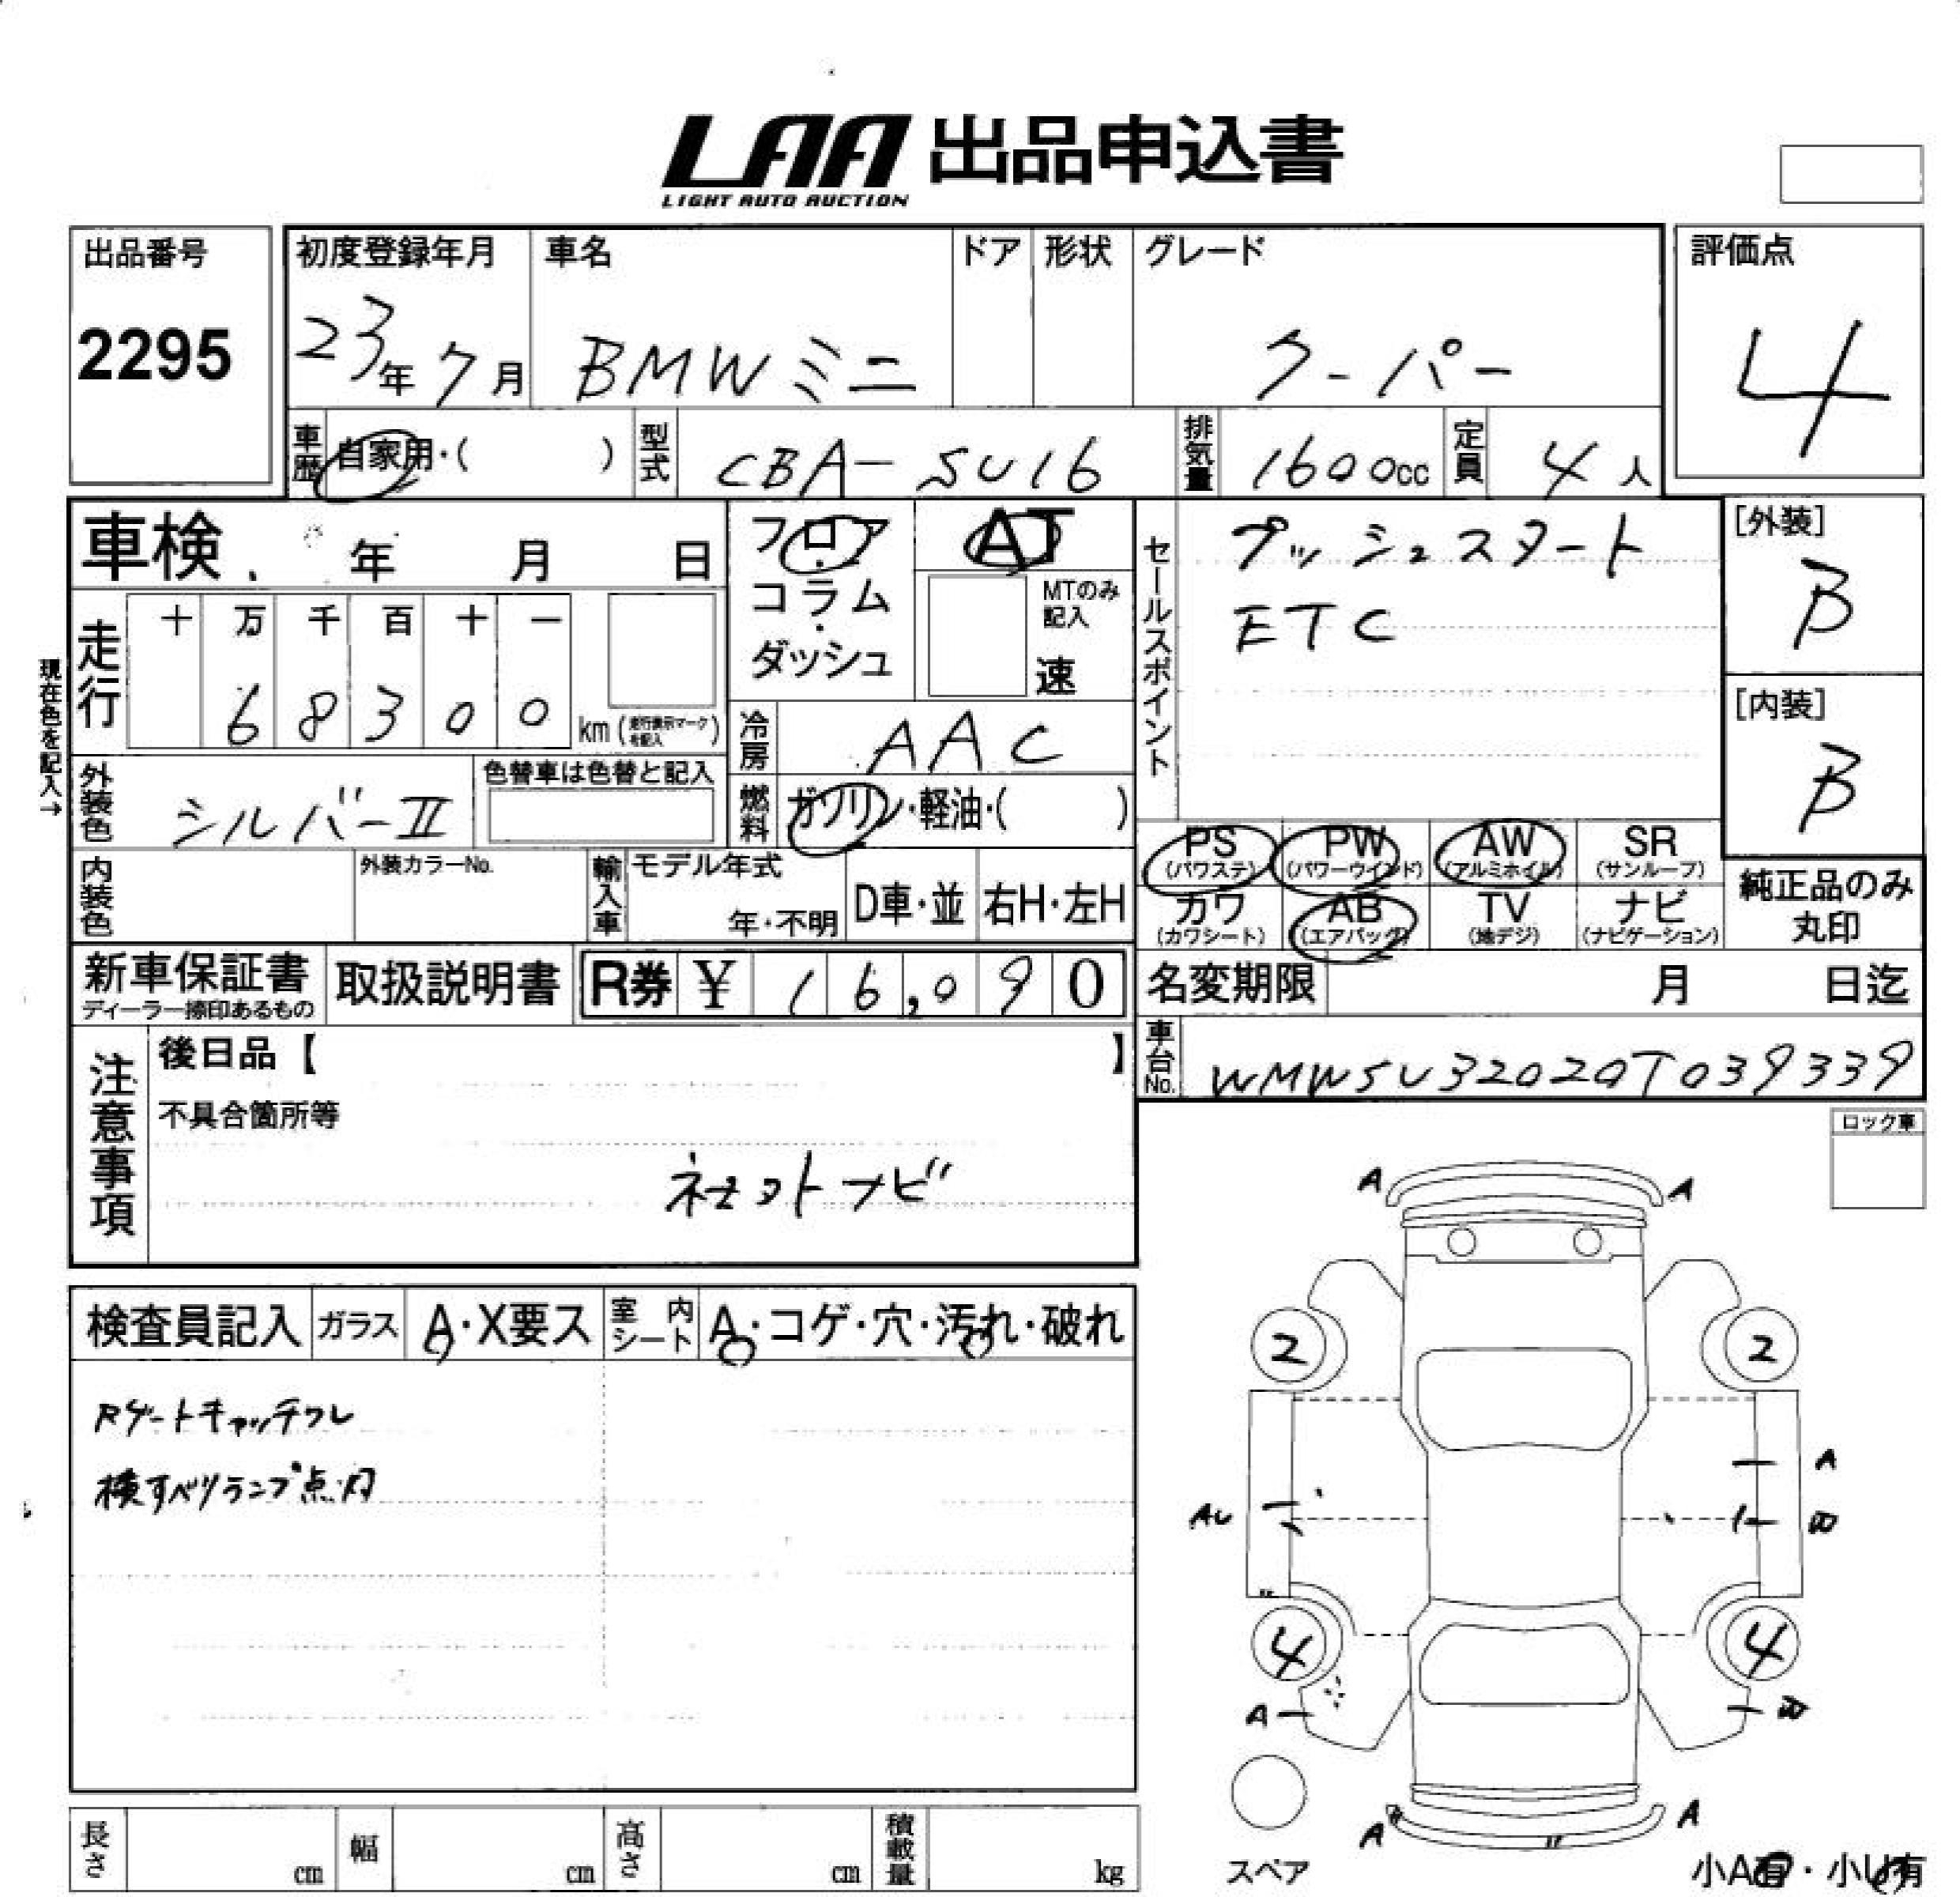 LAA 出品申込書
LIGHT AUTO AUCTION
出品番号
2295
初度登録年月
23年7月
車名
BMWミニ
ドア
形状
グレード
クーパー
評価点
4
車歴
自家用・( )
型式
CBA-SU16
排気量
1600cc
定員
4人
車検 年 月 日
フロア
コラム
・
ダッシュ
AT
MTのみ
記入
速
セールスポイント
プッシュスタート
ETC
[外装]
B
[内装]
B
現在色を記入→
走行
十 万 千 百 十 一
6 8 3 0 0
km (走行表示マークを記入)
冷房
AAC
外装色
シルバーII
色替車は色替と記入
燃料
ガソリン・軽油・( )
PS PW AW SR
(パワステ) (パワーウインド) (アルミホイル) (サンルーフ)
カワ AB TV ナビ
(カワシート) (エアバッグ) (地デジ) (ナビゲーション)
純正品のみ
丸印
内装色
外装カラーNo.
輸入車
モデル年式
年・不明
D車・並
右H・左H
新車保証書
ディーラー捺印あるもの
取扱説明書
R券 ¥ 16,090
名変期限 月 日迄
車台No.
WMWSU32020T039339
注意事項
後日品【 】
不具合箇所等
ロック車
A A
検査員記入
ガラス
A・X要ス
室内シート
A・コゲ・穴・汚れ・破れ
Rゲートキャッチワレ
横すべりランプ点灯
2 2
A
AU W
4 4
A W
A A
スペア
小A有・小U有
長さ cm
幅 cm
高さ cm
積載量 kg